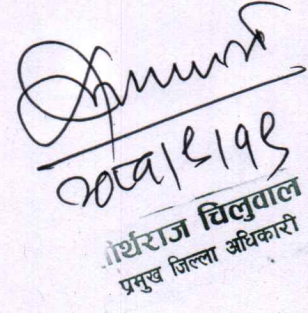 २०८१।९।१९
र्थराज चिलुवाल
प्रमुख जिल्ला अधिकारी